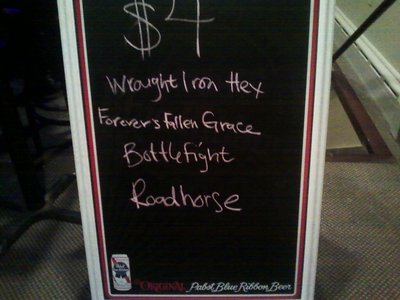 $4
Wrought Iron Hex
Forever's Fallen Grace
Bottlefight
Roadhorse
The ORIGINAL Pabst Blue Ribbon Beer